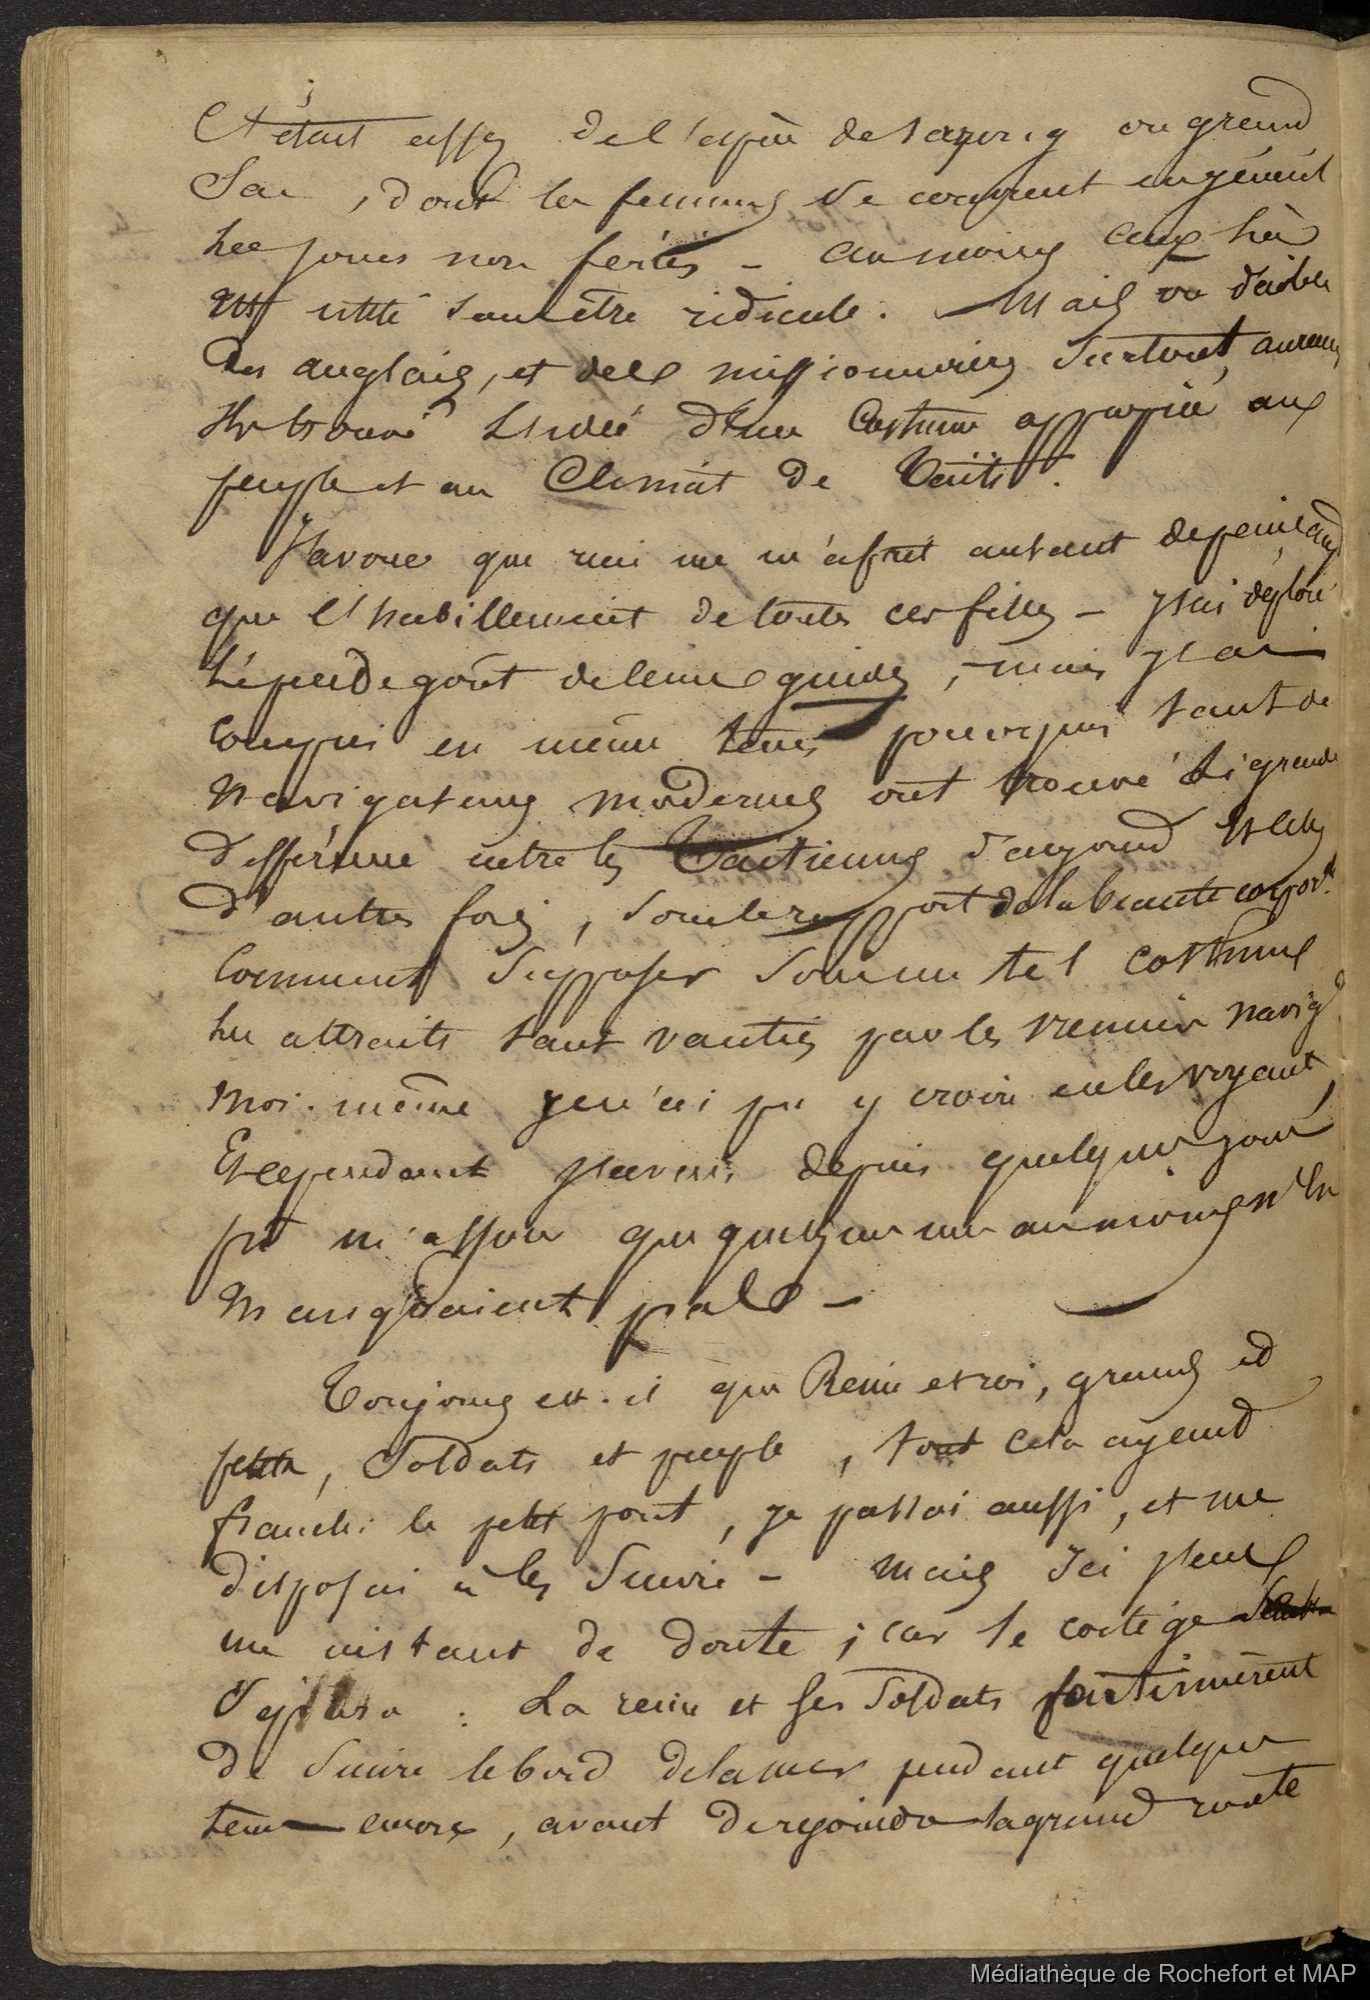 C'était assez de l'espèce de sarong ou grand
Sac, dont les femmes se couvrent en général
les jours non fériés - au moins celui là
est utile sans être ridicule. Mais où diable
des anglais, et des missionnaires surtout, auraient
ils trouvé l'idée d'un Costume approprié aux
peuple et au Climat de Taïti.
J'avoue que rien ne m'a fait autant de peine
que l'habillement de toutes ces filles - j'ai déploré
le peu de goût de leurs guides, mais j'ai
compris en même tems pourquoi tant de
Navigateurs modernes ont trouvé si grande
différence entre les Taïtiennes d'aujourd'hui et celles
d'autre fois, sous le rapport de la beauté corpor.lle
Comment supposer sous un tel costume
les attraits tant vantés par les premiers navig.
Moi-même je n'ai pu y croire en les voyant,
Et cependant j'avais depuis quelques jours
pu m'assurer que quelques unes au moins n'en
manquaient pas -
Toujours est-il que Reine et roi, grands et
petits, Soldats et peuple, tout cela ayant
franchi le petit pont, je passai aussi, et me
disposai à les suivre - Mais ici j'eus
un instant de doute ; car le cortège
sépara : La reine et ses Soldats continuèrent
de suivre le bord de la mer pendant quelque
tems encore, avant de rejoindre la grand route